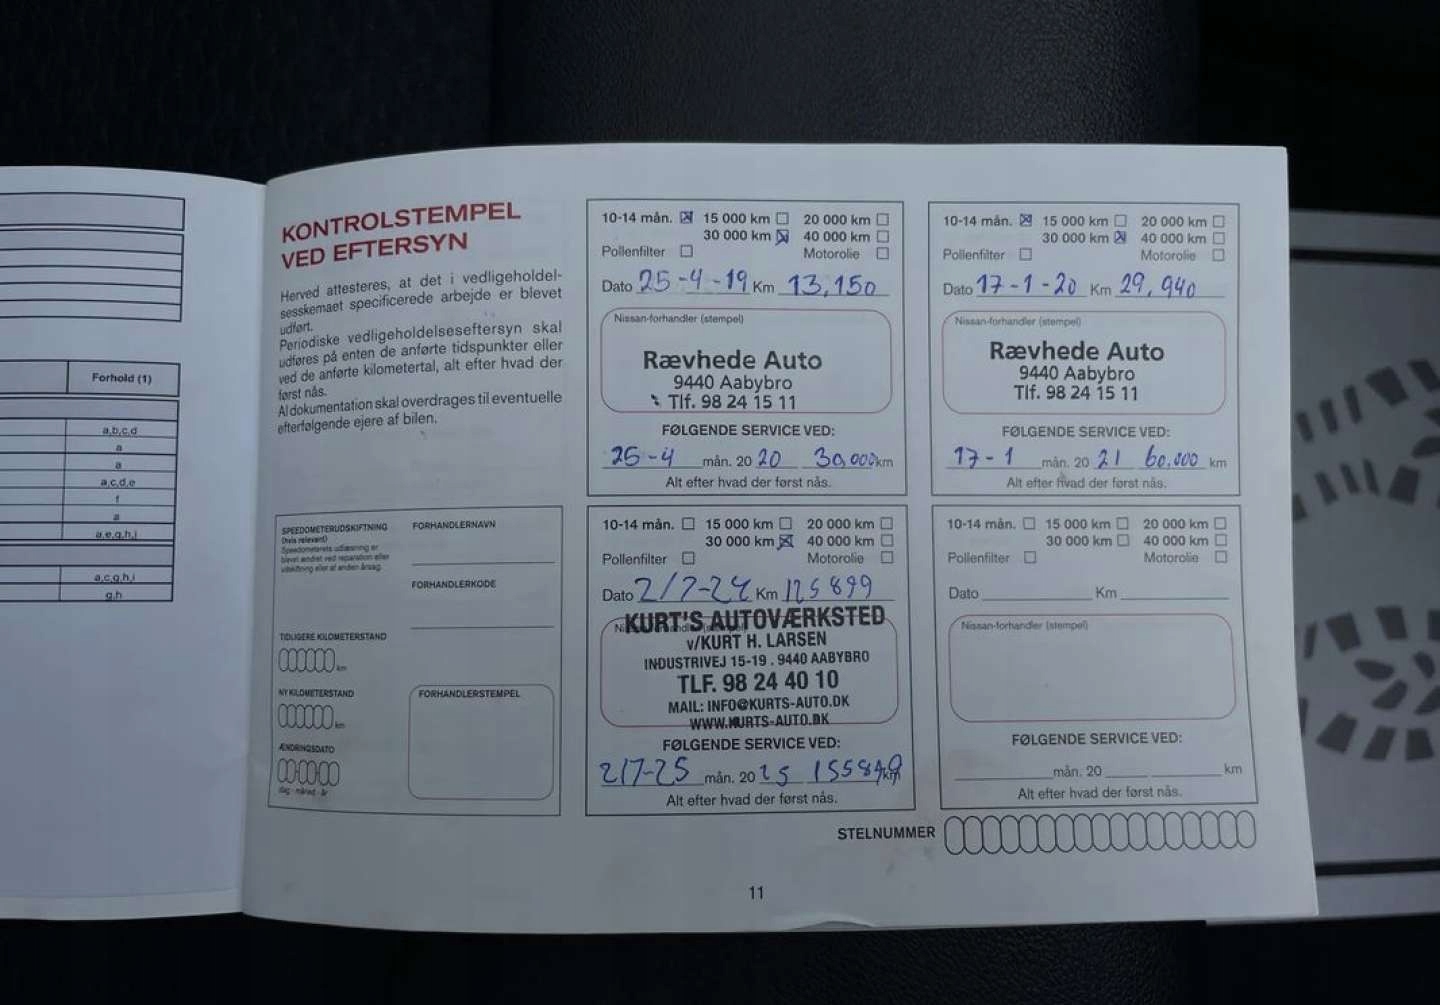 Forhold (1)
a,b,c,d
a
a
a,c,d,e
f
a
a,e,g,h,i
a,c,g,h,i
g,h
KONTROLSTEMPEL
VED EFTERSYN
Herved attesteres, at det i vedligeholdel-
sesskemaet specificerede arbejde er blevet
udført.
Periodiske vedligeholdelseseftersyn skal
udføres på enten de anførte tidspunkter eller
ved de anførte kilometertal, alt efter hvad der
først nås.
Al dokumentation skal overdrages til eventuelle
efterfølgende ejere af bilen.
SPEEDOMETERUDSKIFTNING
(hvis relevant)
Speedometerets udlæsning er
blevet ændret ved reparation eller
udskiftning eller af anden årsag.
TIDLIGERE KILOMETERSTAND
km
NY KILOMETERSTAND
km
ÆNDRINGSDATO
dag - måned - år
FORHANDLERNAVN
FORHANDLERKODE
FORHANDLERSTEMPEL
10-14 mån. 15 000 km 20 000 km
30 000 km 40 000 km
Pollenfilter Motorolie
Dato 25-4-19 Km 13,150
Nissan-forhandler (stempel)
Rævhede Auto
9440 Aabybro
Tlf. 98 24 15 11
FØLGENDE SERVICE VED:
25-4 mån. 20 20 30,000 km
Alt efter hvad der først nås.
10-14 mån. 15 000 km 20 000 km
30 000 km 40 000 km
Pollenfilter Motorolie
Dato 17-1-20 Km 29,940
Nissan-forhandler (stempel)
Rævhede Auto
9440 Aabybro
Tlf. 98 24 15 11
FØLGENDE SERVICE VED:
17-1 mån. 20 21 60,000 km
Alt efter hvad der først nås.
10-14 mån. 15 000 km 20 000 km
30 000 km 40 000 km
Pollenfilter Motorolie
Dato 2/7-24 Km 125899
KURT'S AUTOVÆRKSTED
v/KURT H. LARSEN
INDUSTRIVEJ 15-19 . 9440 AABYBRO
TLF. 98 24 40 10
MAIL: INFO@KURTS-AUTO.DK
WWW.KURTS-AUTO.DK
FØLGENDE SERVICE VED:
2/7-25 mån. 20 25 km
Alt efter hvad der først nås.
10-14 mån. 15 000 km 20 000 km
30 000 km 40 000 km
Pollenfilter Motorolie
Dato Km
Nissan-forhandler (stempel)
FØLGENDE SERVICE VED:
mån. 20 km
Alt efter hvad der først nås.
STELNUMMER
11